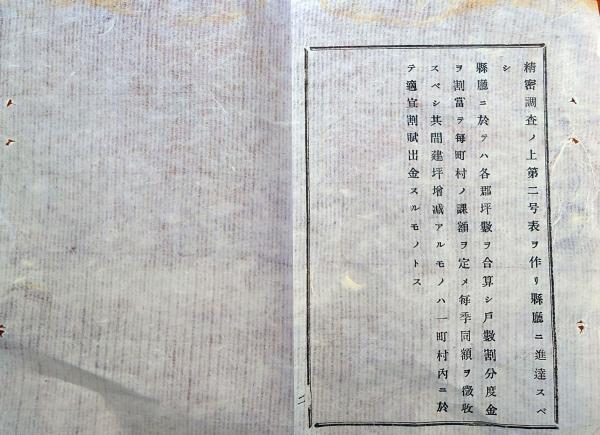 精密調査ノ上第二号表ヲ作リ縣廳ニ進達スベ
シ
縣廳ニ於テハ各郡坪數ヲ合算シ戸數割分度金
ヲ割當ヲ每町村ノ課額ヲ定メ每季同額ヲ徵收
スベシ其間建坪增減アルモノハ一町村內ニ於
テ適宜割賦出金スルモノトス
二